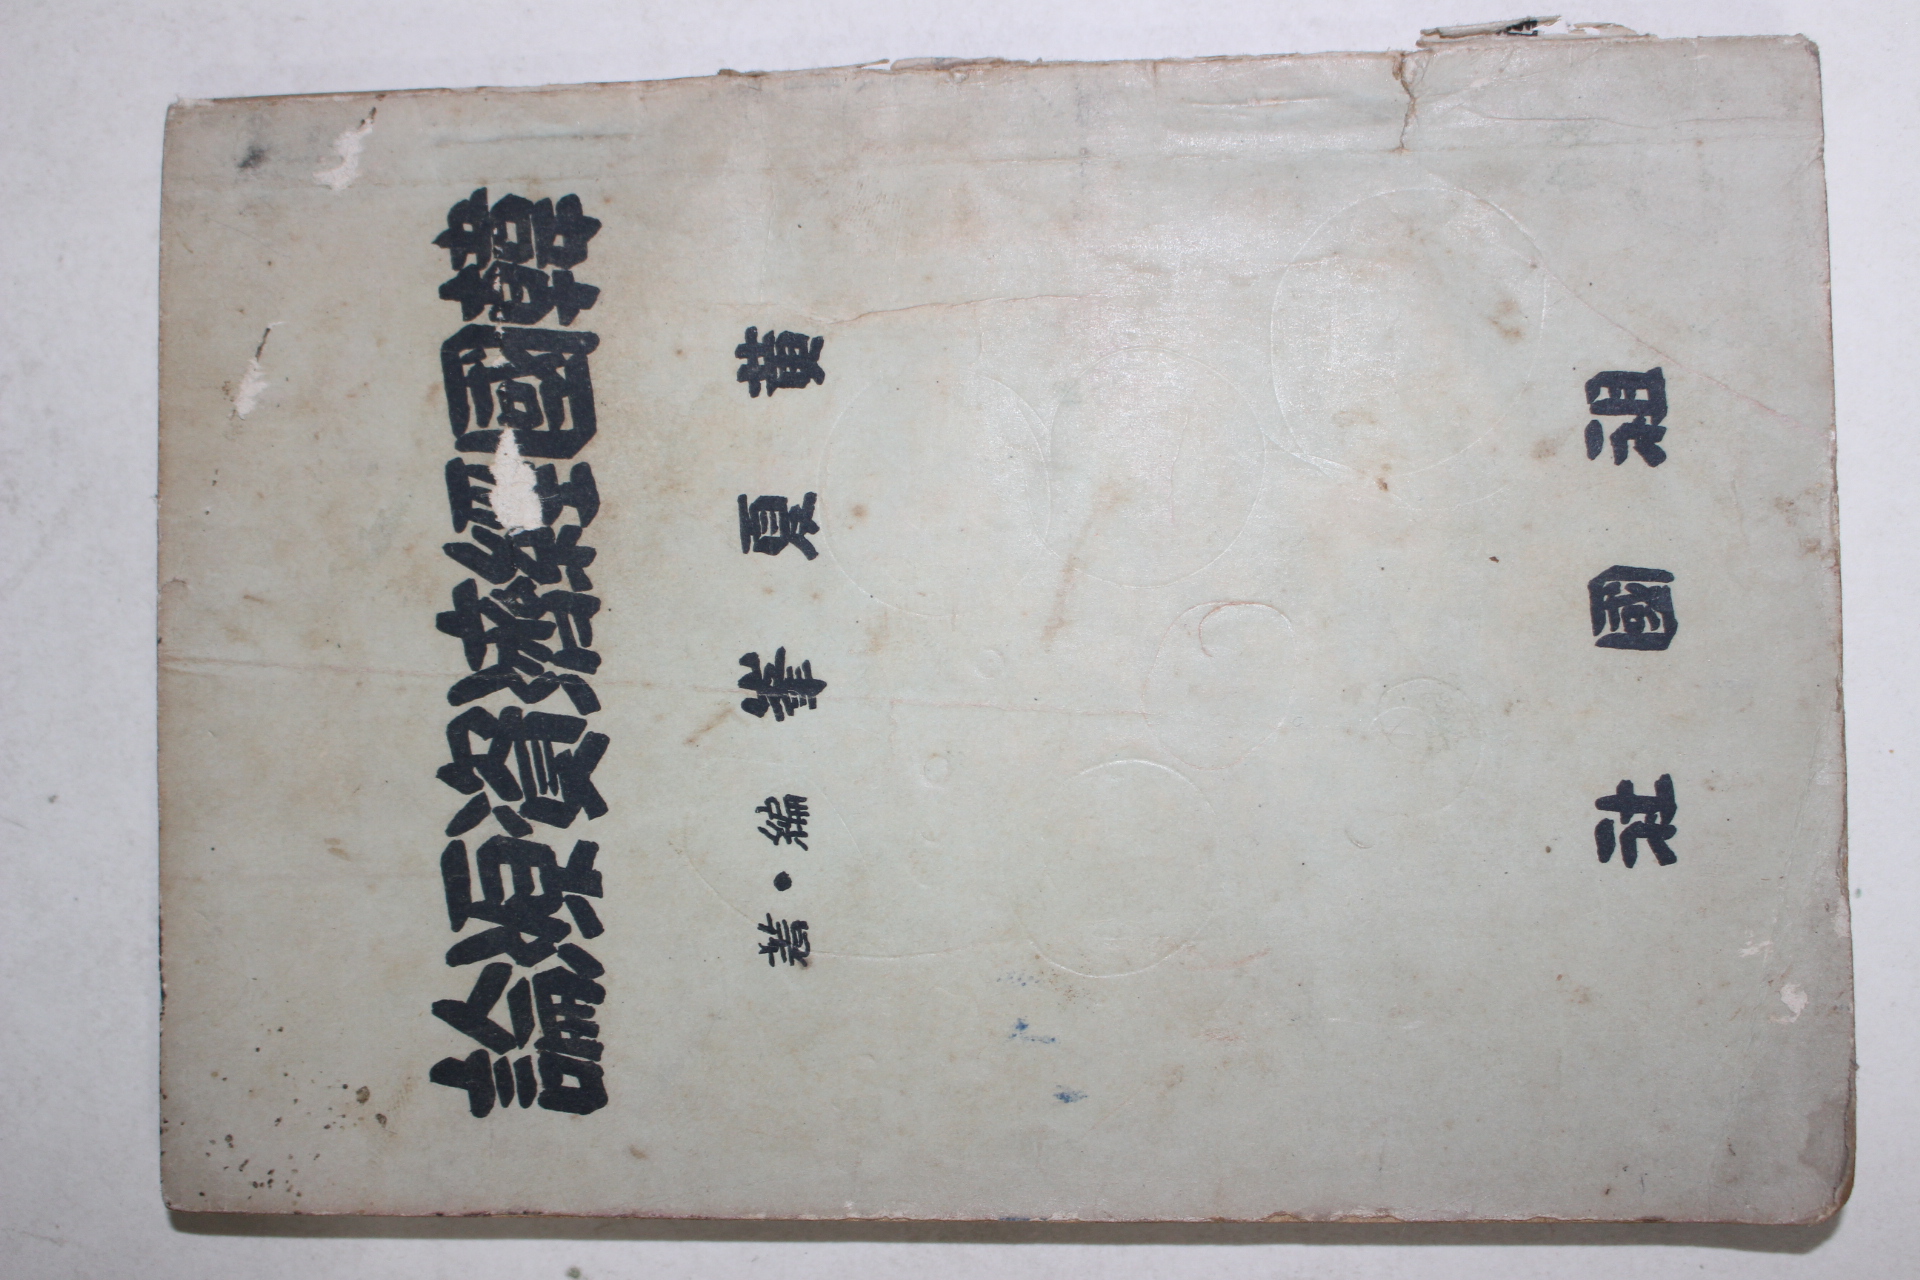 韓國經濟資源論
黃夏峯編・著
祖國社